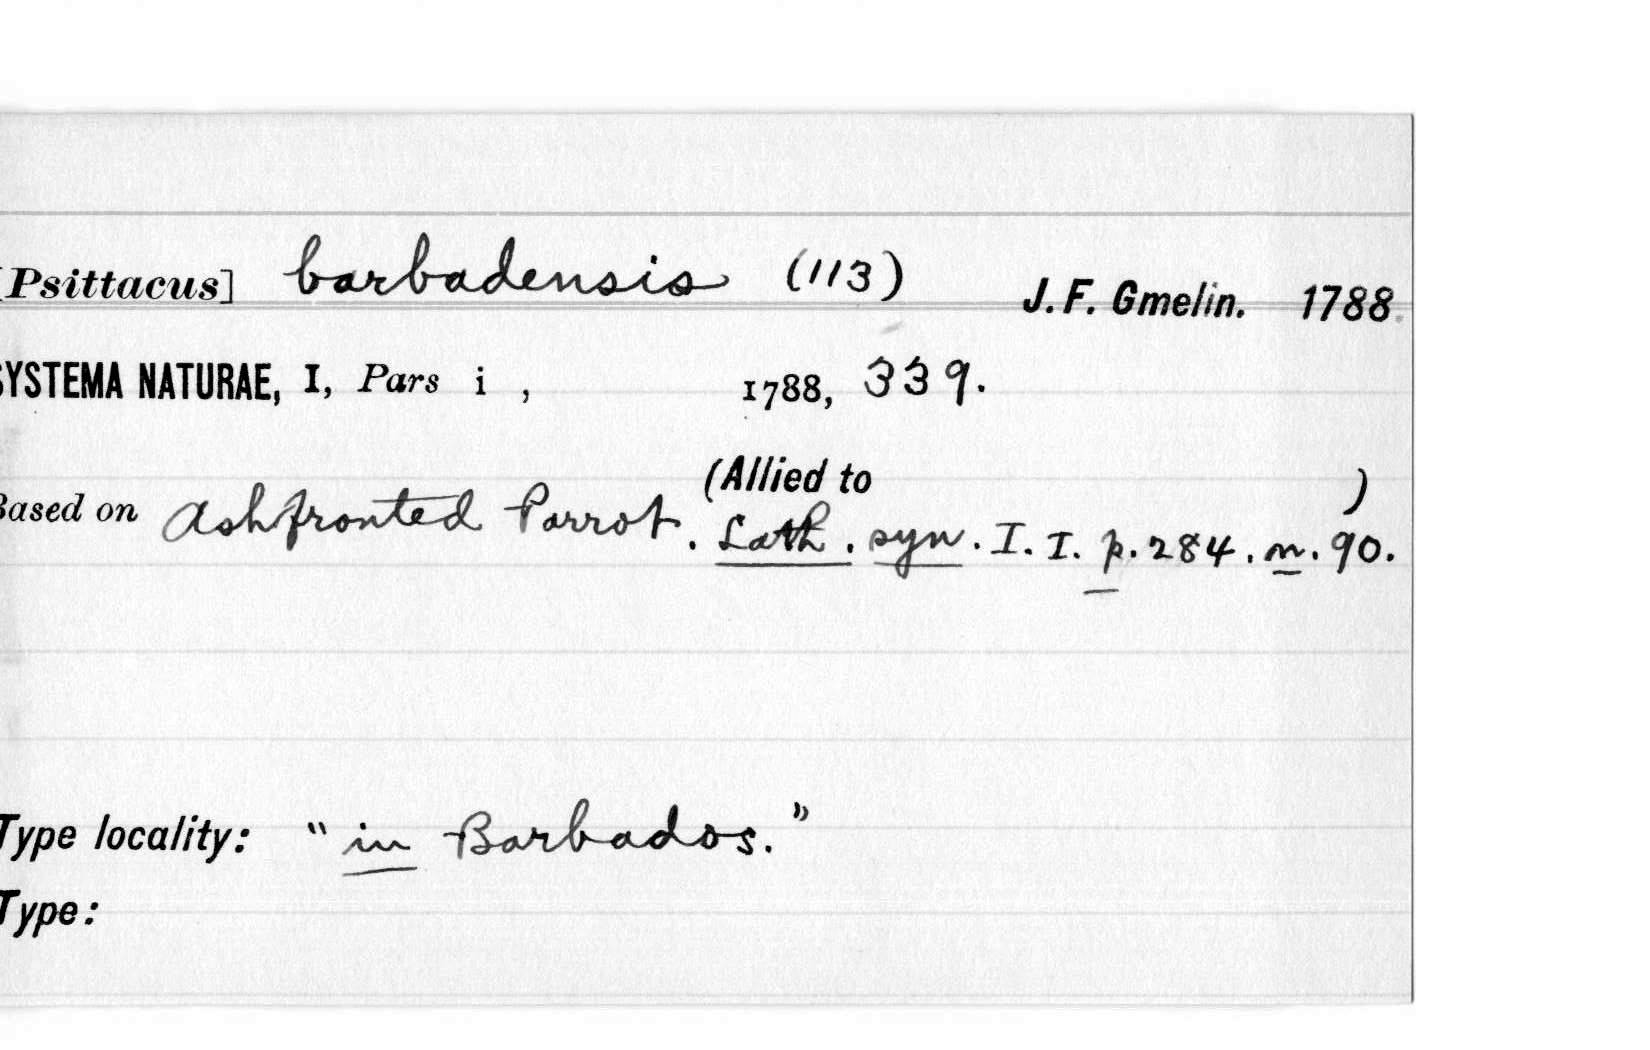 [Psittacus] barbadensis (113) J. F. Gmelin. 1788.
SYSTEMA NATURAE, I, Pars i , 1788, 339.
(Allied to )
Based on Ashfronted Parrot. Lath. syn. I. I. p. 284. n. 90.
Type locality: "in Barbados."
Type: